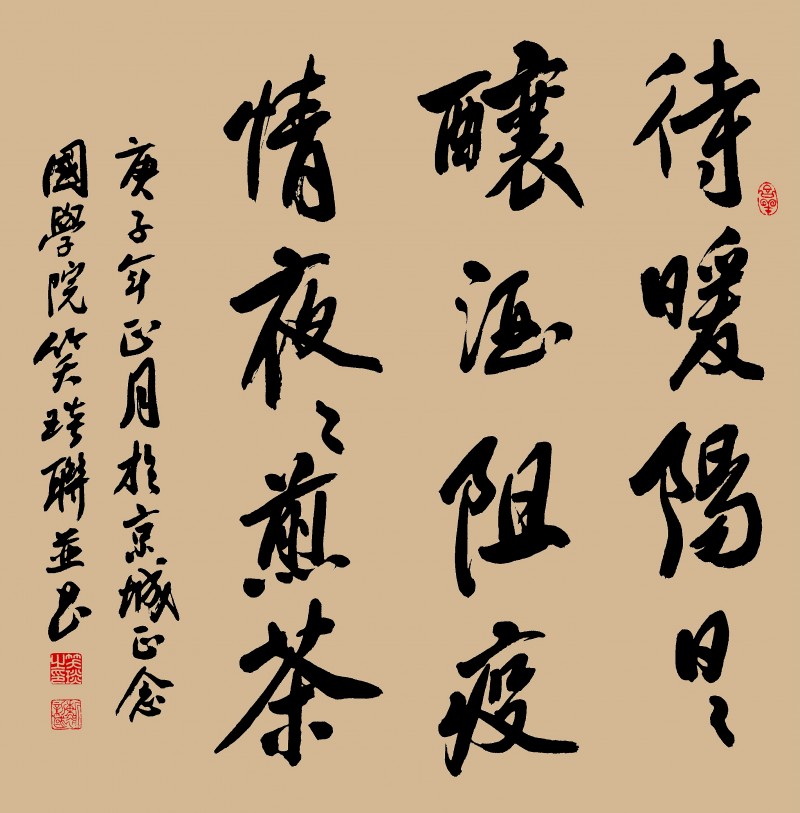 待暖陽日〻
釀酒阻疫
情夜〻煎茶
庚子年正月於京城正念
國學院笑琰聯並書